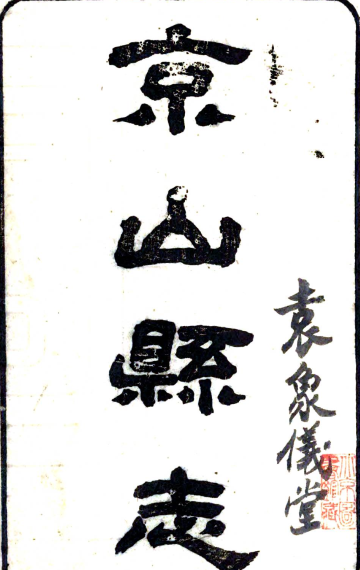 袁象儀堂
京山縣志